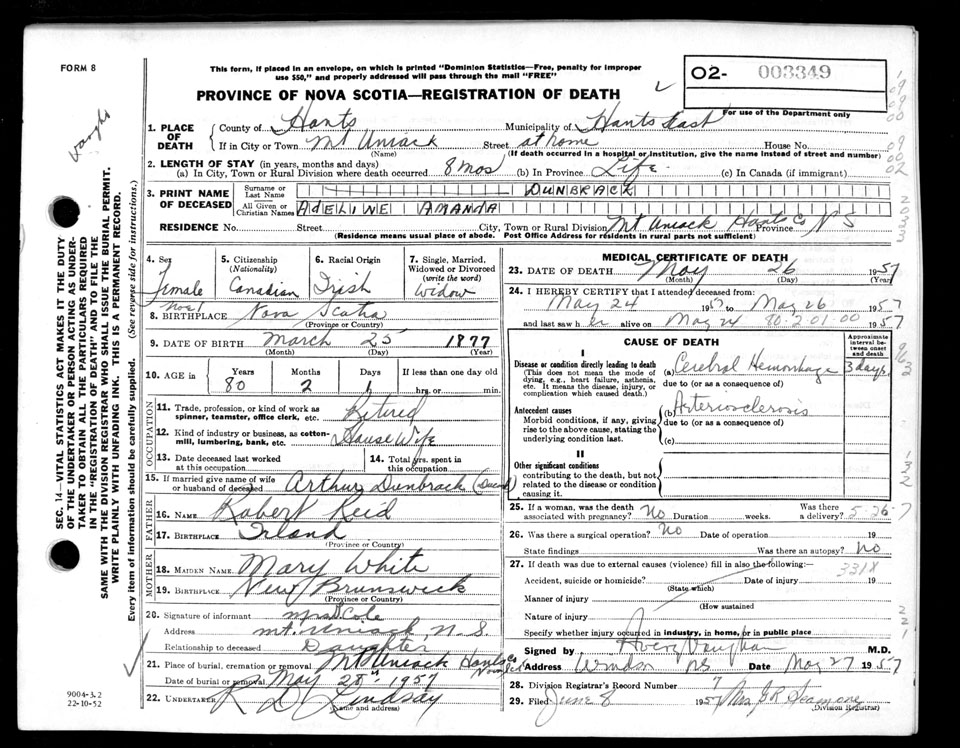 FORM 8
This form, if placed in an envelope, on which is printed "Dominion Statistics—Free, penalty for improper
use $50," and properly addressed will pass through the mail "FREE"
O2- 003349
PROVINCE OF NOVA SCOTIA—REGISTRATION OF DEATH
For use of the Department only
1. PLACE OF DEATH
County of Hants Municipality of Hants East
If in City or Town Mt Uniack Street at home House No.
(Name) (If death occurred in a hospital or institution, give the name instead of street and number)
2. LENGTH OF STAY (in years, months and days)
(a) In City, Town or Rural Division where death occurred 8 mos (b) In Province Life (c) In Canada (if immigrant)
3. PRINT NAME OF DECEASED
Surname or Last Name DUNBRACK
All Given or Christian Names ADELINE AMANDA
RESIDENCE No. Street City, Town or Rural Division Mt Uniack Hants Co Province N S
(Residence means usual place of abode. Post Office Address for residents in rural parts not sufficient)
4. Sex
Female
5. Citizenship
(Nationality)
Canadian
6. Racial Origin
Irish
7. Single, Married,
Widowed or Divorced
(write the word)
Widow
8. BIRTHPLACE Nova Scotia
(Province or Country)
9. DATE OF BIRTH March 25 1877
(Month) (Day) (Year)
10. AGE in Years Months Days If less than one day old
80 2 1 hrs. or min.
OCCUPATION
11. Trade, profession, or kind of work as
spinner, teamster, office clerk, etc. Retired
12. Kind of industry or business, as cotton-
mill, lumbering, bank, etc. House Wife
13. Date deceased last worked
at this occupation
14. Total yrs. spent in
this occupation
15. If married give name of wife
or husband of deceased Arthur Dunbrack
FATHER
16. NAME Robert Reid
17. BIRTHPLACE Irland
(Province or Country)
MOTHER
18. MAIDEN NAME Mary White
19. BIRTHPLACE New Brunswick
(Province or Country)
20. Signature of informant Mrs D Cole
Address Mt. Uniack, N. S.
Relationship to deceased Daughter
21. Place of burial, cremation or removal Mt Uniack Hants Co
Date of burial or removal May 28th 1957
22. UNDERTAKER R D Lindsay
(Name and address)
MEDICAL CERTIFICATE OF DEATH
23. DATE OF DEATH May 26 1957
(Month) (Day) (Year)
24. I HEREBY CERTIFY that I attended deceased from:
May 24 1957 to May 26 1957
and last saw her alive on May 24 80-2-01-00 1957
CAUSE OF DEATH
Approximate
interval be-
tween onset
and death
I
Disease or condition directly leading to death
(This does not mean the mode of
dying, e.g., heart failure, asthenia,
etc. It means the disease, injury, or
complication which caused death.)
(a) Cerebral Hemorrhage 3 days
due to (or as a consequence of)
Antecedent causes
Morbid conditions, if any, giving
rise to the above cause, stating the
underlying condition last.
(b) Arteriosclerosis
due to (or as a consequence of)
(c)
II
Other significant conditions
contributing to the death, but not
related to the disease or condition
causing it.
25. If a woman, was the death
associated with pregnancy? No Duration weeks.
Was there
a delivery? 5-26-7
26. Was there a surgical operation? No Date of operation 19
State findings Was there an autopsy? No
27. If death was due to external causes (violence) fill in also the following:
331X
Accident, suicide or homicide? Date of injury 19
(State which)
Manner of injury
(How sustained
Nature of injury
Specify whether injury occurred in industry, in home, or in public place
Signed by Avery Vaughan M.D.
Address Windsor NS Date May 27 1957
28. Division Registrar's Record Number 7
29. Filed June 8 1957 Mrs J R Seamone
(Division Registrar)
SEC. 14—VITAL STATISTICS ACT MAKES IT THE DUTY
OF THE UNDERTAKER OR PERSON ACTING AS UNDER-
TAKER TO OBTAIN ALL THE PARTICULARS REQUIRED
IN THE "REGISTRATION OF DEATH" AND TO FILE THE
SAME WITH THE DIVISION REGISTRAR WHO SHALL ISSUE THE BURIAL PERMIT.
WRITE PLAINLY WITH UNFADING INK. THIS IS A PERMANENT RECORD.
Every item of information should be carefully supplied. (See reverse side for instructions.)
9004-3.2
22-10-52